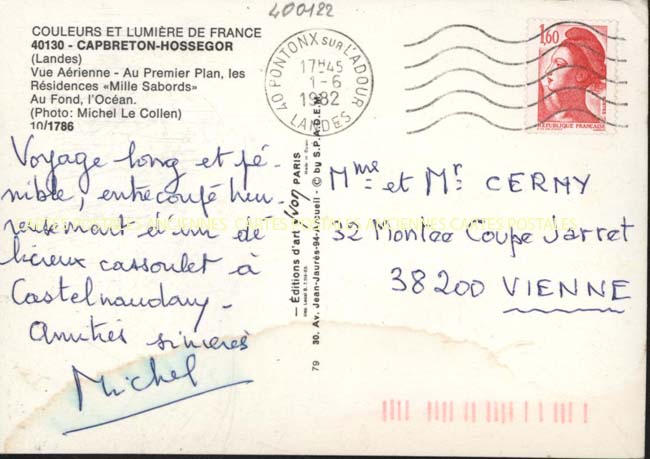 400122
COULEURS ET LUMIÈRE DE FRANCE
40130 - CAPBRETON-HOSSEGOR
(Landes)
Vue Aérienne - Au Premier Plan, les
Résidences «Mille Sabords»
Au Fond, l'Océan.
(Photo: Michel Le Collen)
10/1786
40 PONTONX SUR L'ADOUR
17H45
1-6
1982
LANDES
1,60
REPUBLIQUE FRANÇAISE
Voyage long et pé-
nible, entrecoupé heu-
reusement d'un dé
licieux cassoulet à
Castelnaudary-
Amitiés sincères
Michel
— Éditions d'art Yvon PARIS
30. Av. Jean-Jaurès-94-Arcueil - © by S.P.A.D.E.M.
79
Mme et Mr CERMY
32 Montée Coupe Jarret
38200 VIENNE
CARTES POSTALES ANCIENNES CARTES POSTALES ANCIENNES CARTES POSTALES